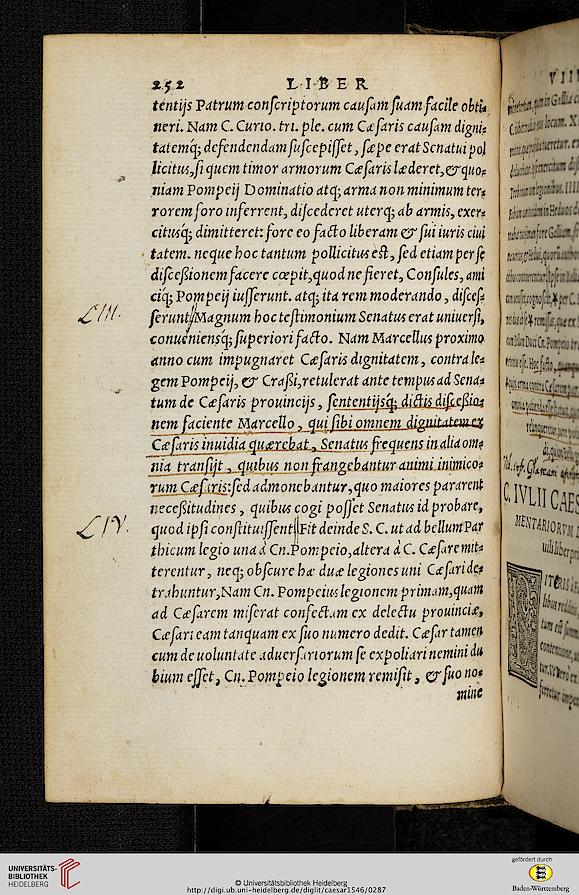 252 LIBER
tentijs Patrum conscriptorum causam suam facile obti⸗
neri. Nam C. Curio. tri. ple. cum Cæsaris causam digni⸗
tatemq́; defendendam suscepisset, sæpe erat Senatui pol
licitus, si quem timor armorum Cæsaris læderet, & quo⸗
niam Pompeij Dominatio atq; arma non minimum ter⸗
rorem foro inferrent, discederet uterq; ab armis, exer⸗
citusq́; dimitteret: fore eo facto liberam & sui iuris ciui
tatem. neque hoc tantum pollicitus est, sed etiam per se
discessionem facere cœpit, quod ne fieret, Consules, ami
ciq́; Pompeij iusserunt. atq; ita rem moderando, disces⸗
LIII.
serunt Magnum hoc testimonium Senatus erat uniuersi,
conueniensq́; superiori facto. Nam Marcellus proximo
anno cum impugnaret Cæsaris dignitatem, contra le⸗
gem Pompeij, & Crassi, retulerat ante tempus ad Sena⸗
tum de Cæsaris prouincijs, sententijsq́; dictis discessio⸗
nem faciente Marcello, qui sibi omnem dignitatem ex
Cæsaris inuidia quærebat, Senatus frequens in alia om⸗
nia transijt, quibus non frangebantur animi inimico⸗
rum Cæsaris: sed admonebantur, quo maiores pararent
necessitudines, quibus cogi posset Senatus id probare,
LIV.
quod ipsi constituissent Fit deinde S. C. ut ad bellum Par
thicum legio una à Cn. Pompeio, altera à C. Cæsare mit⸗
terentur, neq; obscure hæ duæ legiones uni Cæsari de⸗
trahuntur, Nam Cn. Pompeius legionem primam, quam
ad Cæsarem miserat confectam ex delectu prouinciæ,
Cæsari eam tanquam ex suo numero dedit. Cæsar tamen
cum de uoluntate aduersariorum se expoliari nemini du
bium esset, Cn. Pompeio legionem remisit, & suo no⸗
mine
VIII
C. IVLII CAES
MENTARIORVM
UNIVERSITÄTS-
BIBLIOTHEK
HEIDELBERG
© Universitätsbibliothek Heidelberg
http://digi.ub.uni-heidelberg.de/diglit/caesar1546/0287
gefördert durch
Baden-Württemberg